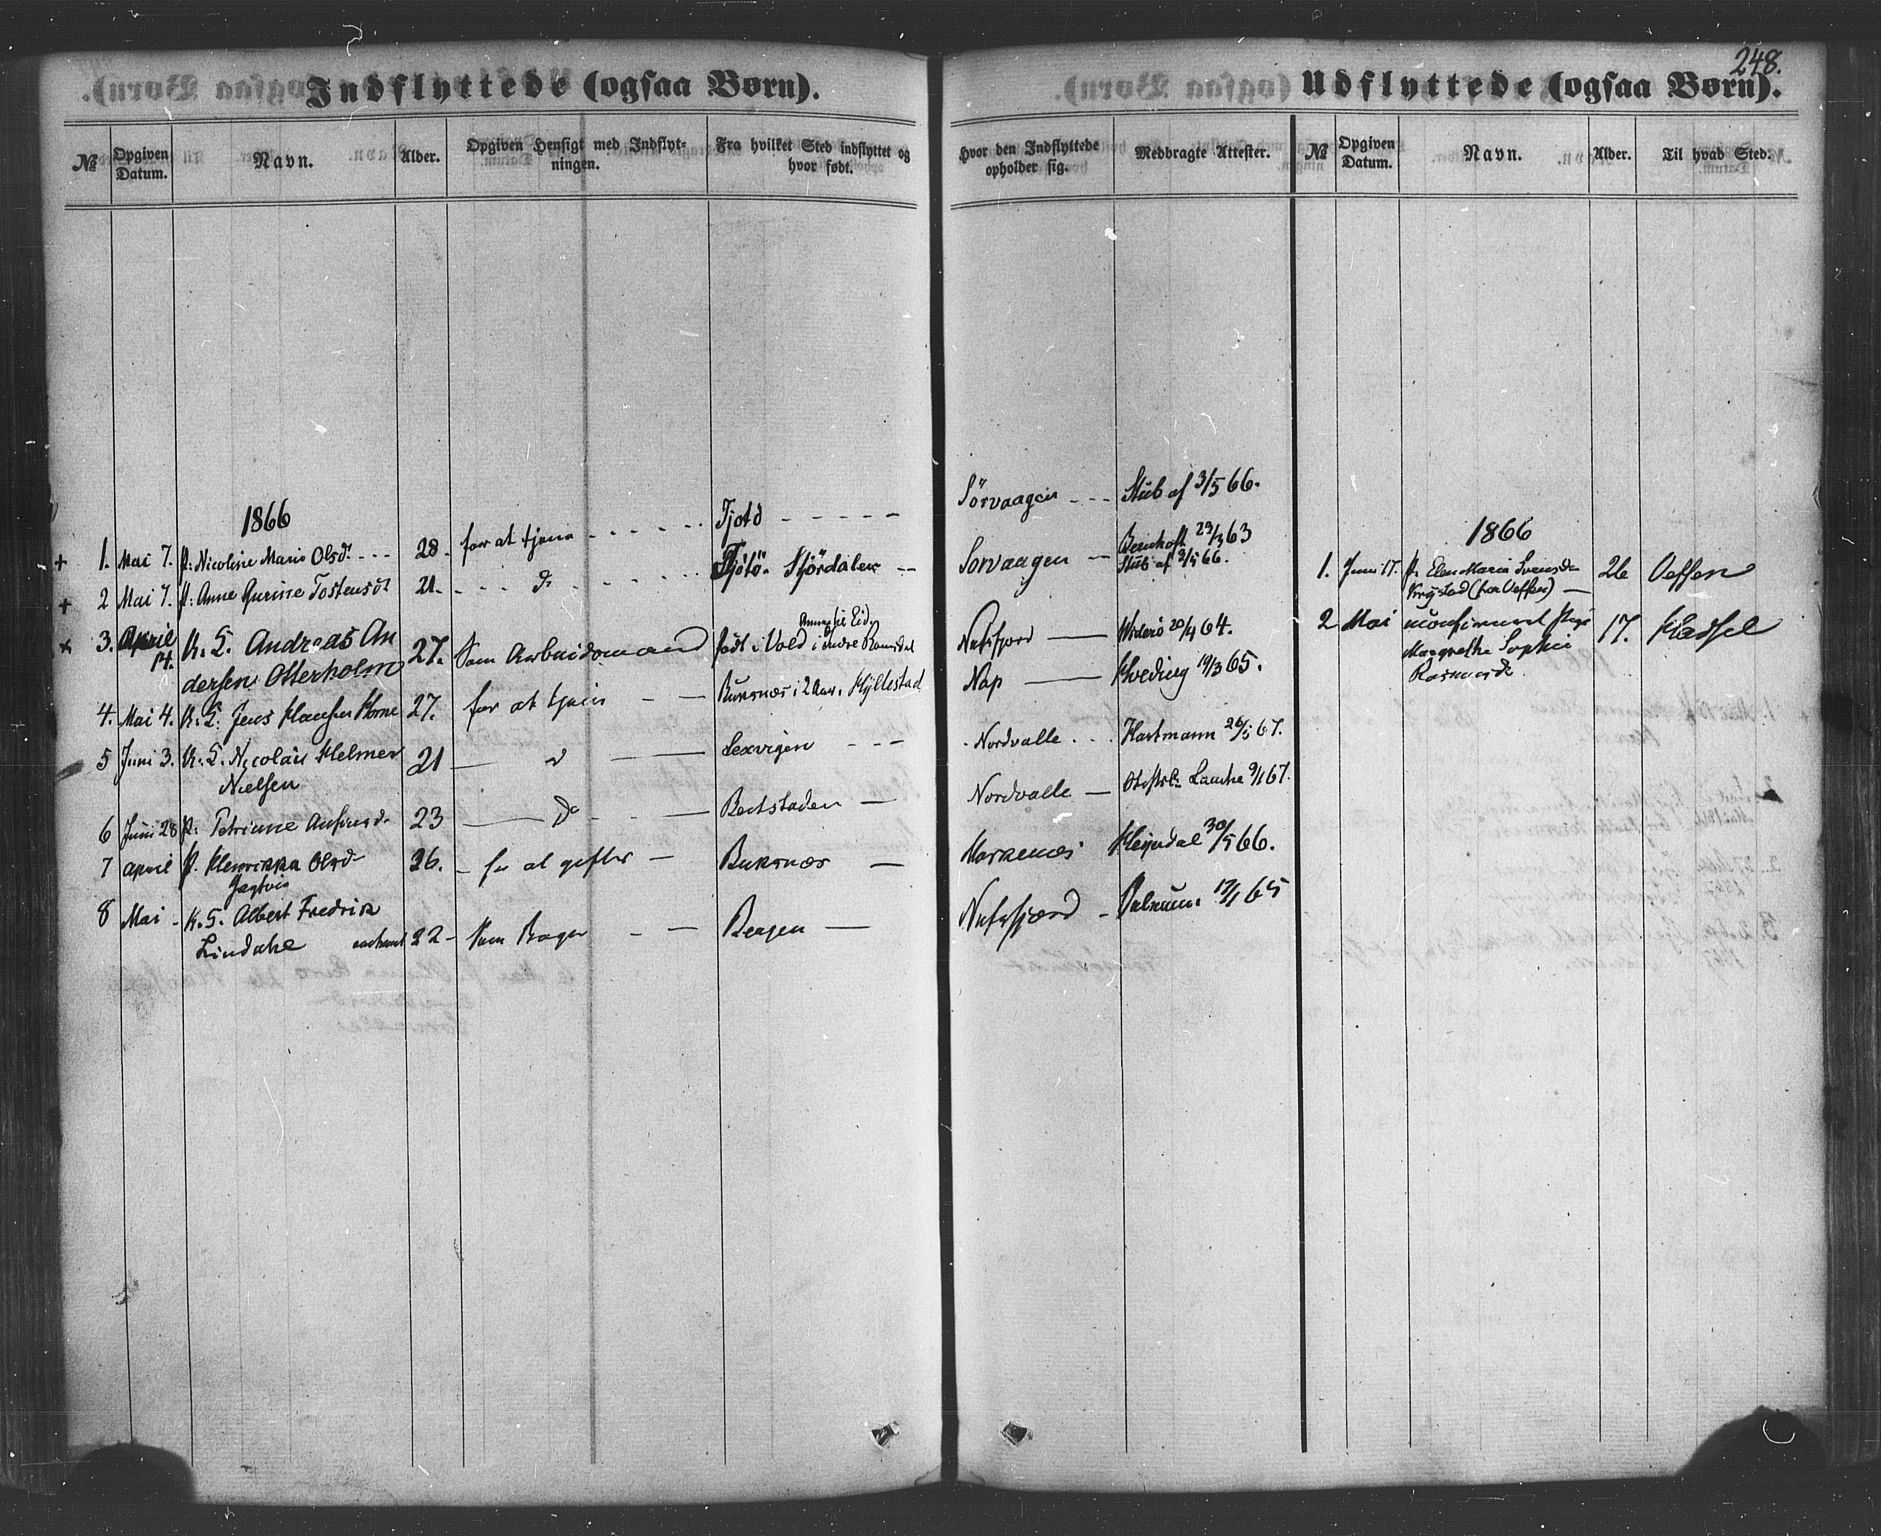 248.
Indflyttede (ogsaa Børn).
Udflyttede (ogsaa Børn).
№ Opgiven Datum. Navn. Alder. Opgiven Hensigt med Indflytningen. Fra hvilket Sted indflyttet og hvor født. Hvor den Indflyttede opholder sig. Medbragte Attester.
№ Opgiven Datum. Navn. Alder. Til hvad Sted.
1866
+ 1. Mai 7. P: Nicoline Marie Olsdr - - - 28. for at tjene - - - Tjotö - - - - - Sörvaagen - - - Stub af 3/5 66.
+ 2 Mai 7. P: Anne Gurine Tostensdr 21. - - - do - - - Tjötö. Stjördalen - - Sorvaagen - 23/3 63
Stub af 3/5 66.
x 3. April 14. U. K. Andreas An
dersen Otterholm 27. Som Arbeidsmand født i Vold i indre Romsdal Nufsfjord - Widerö 20/4 64.
4. Mai 4. U. K. Jens Hansen 27. for at tjene - - Buksnæs i 2 Aar. Hyllestad Nap - Kveding 19/3 65.
5 Juni 3. U. K. Nicolai Helmer
Nielsen 21 - do - Lexvigen - - - Nordvalle . . . Hartmann 26/5 67.
6 Juni 28 P: Petrine 23 - Do - - - Beitstaden - Nordvalle - 9/1 67.
7 April P. Henrikka Olsd- 26. - for at gifter - Buksnæs - 30/5 66.
8 Mai - U. K. Albert Fredrik
Lindahl 22 - Som Bager - - Bergen - Nufsfjord - 17/1 65
1866
1. Juni 17. P. Elen Maria Svensdr
26 Oeffen
2 Mai uconfirmeret Pige
Margrethe Sophie
Rasmusdr 17. Hadsel